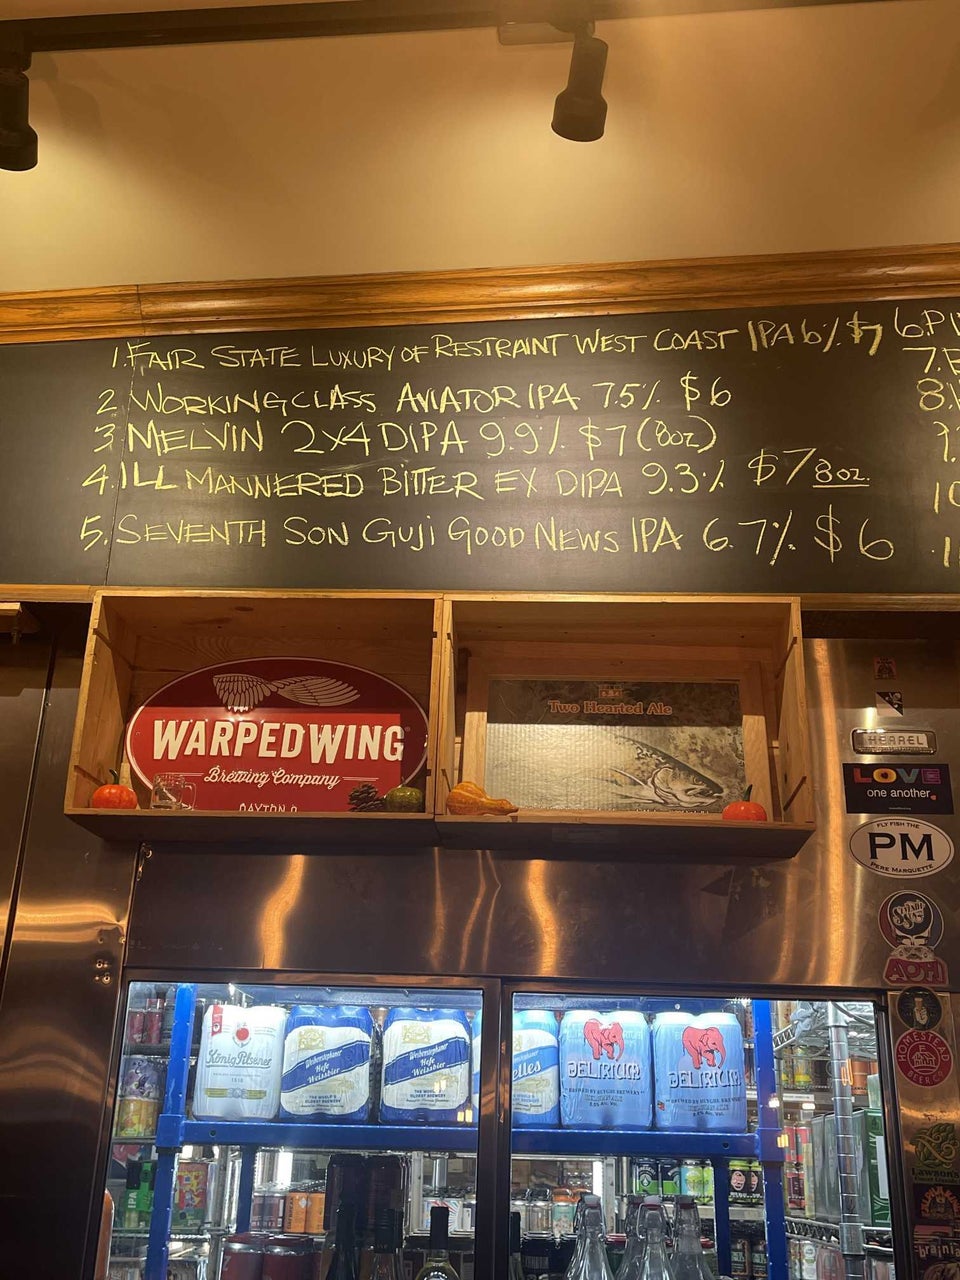 1. FAIR STATE LUXURY OF RESTRAINT WEST COAST IPA 6% $7
2 WORKING CLASS AVIATOR IPA 7.5% $6
3 MELVIN 2X4 DIPA 9.9% $7 (8oz)
4. ILL MANNERED BITTER EX DIPA 9.3% $7 8oz.
5. SEVENTH SON GUJI GOOD NEWS IPA 6.7% $6
6.
7.
8.
9.
10
WARPED WING
Brewing Company
DAYTON
Two Hearted Ale
LOVE
one another.
FLY FISH THE
PM
PERE MARQUETTE
AOH
HOMESTEAD
BEER CO
König Pilsener
Weihenstephaner
Hefe
Weissbier
THE WORLD'S
OLDEST BREWERY
Weihenstephaner
Hefe
Weissbier
THE WORLD'S
OLDEST BREWERY
elles
DELIRIUM
DELIRIUM
IPA
Lawson's